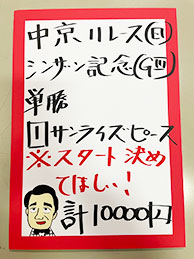 中京11レース(日)
シンザン記念(GⅢ)
単勝
1サンライズピース
※スタート決め
てほしい!
計10000円